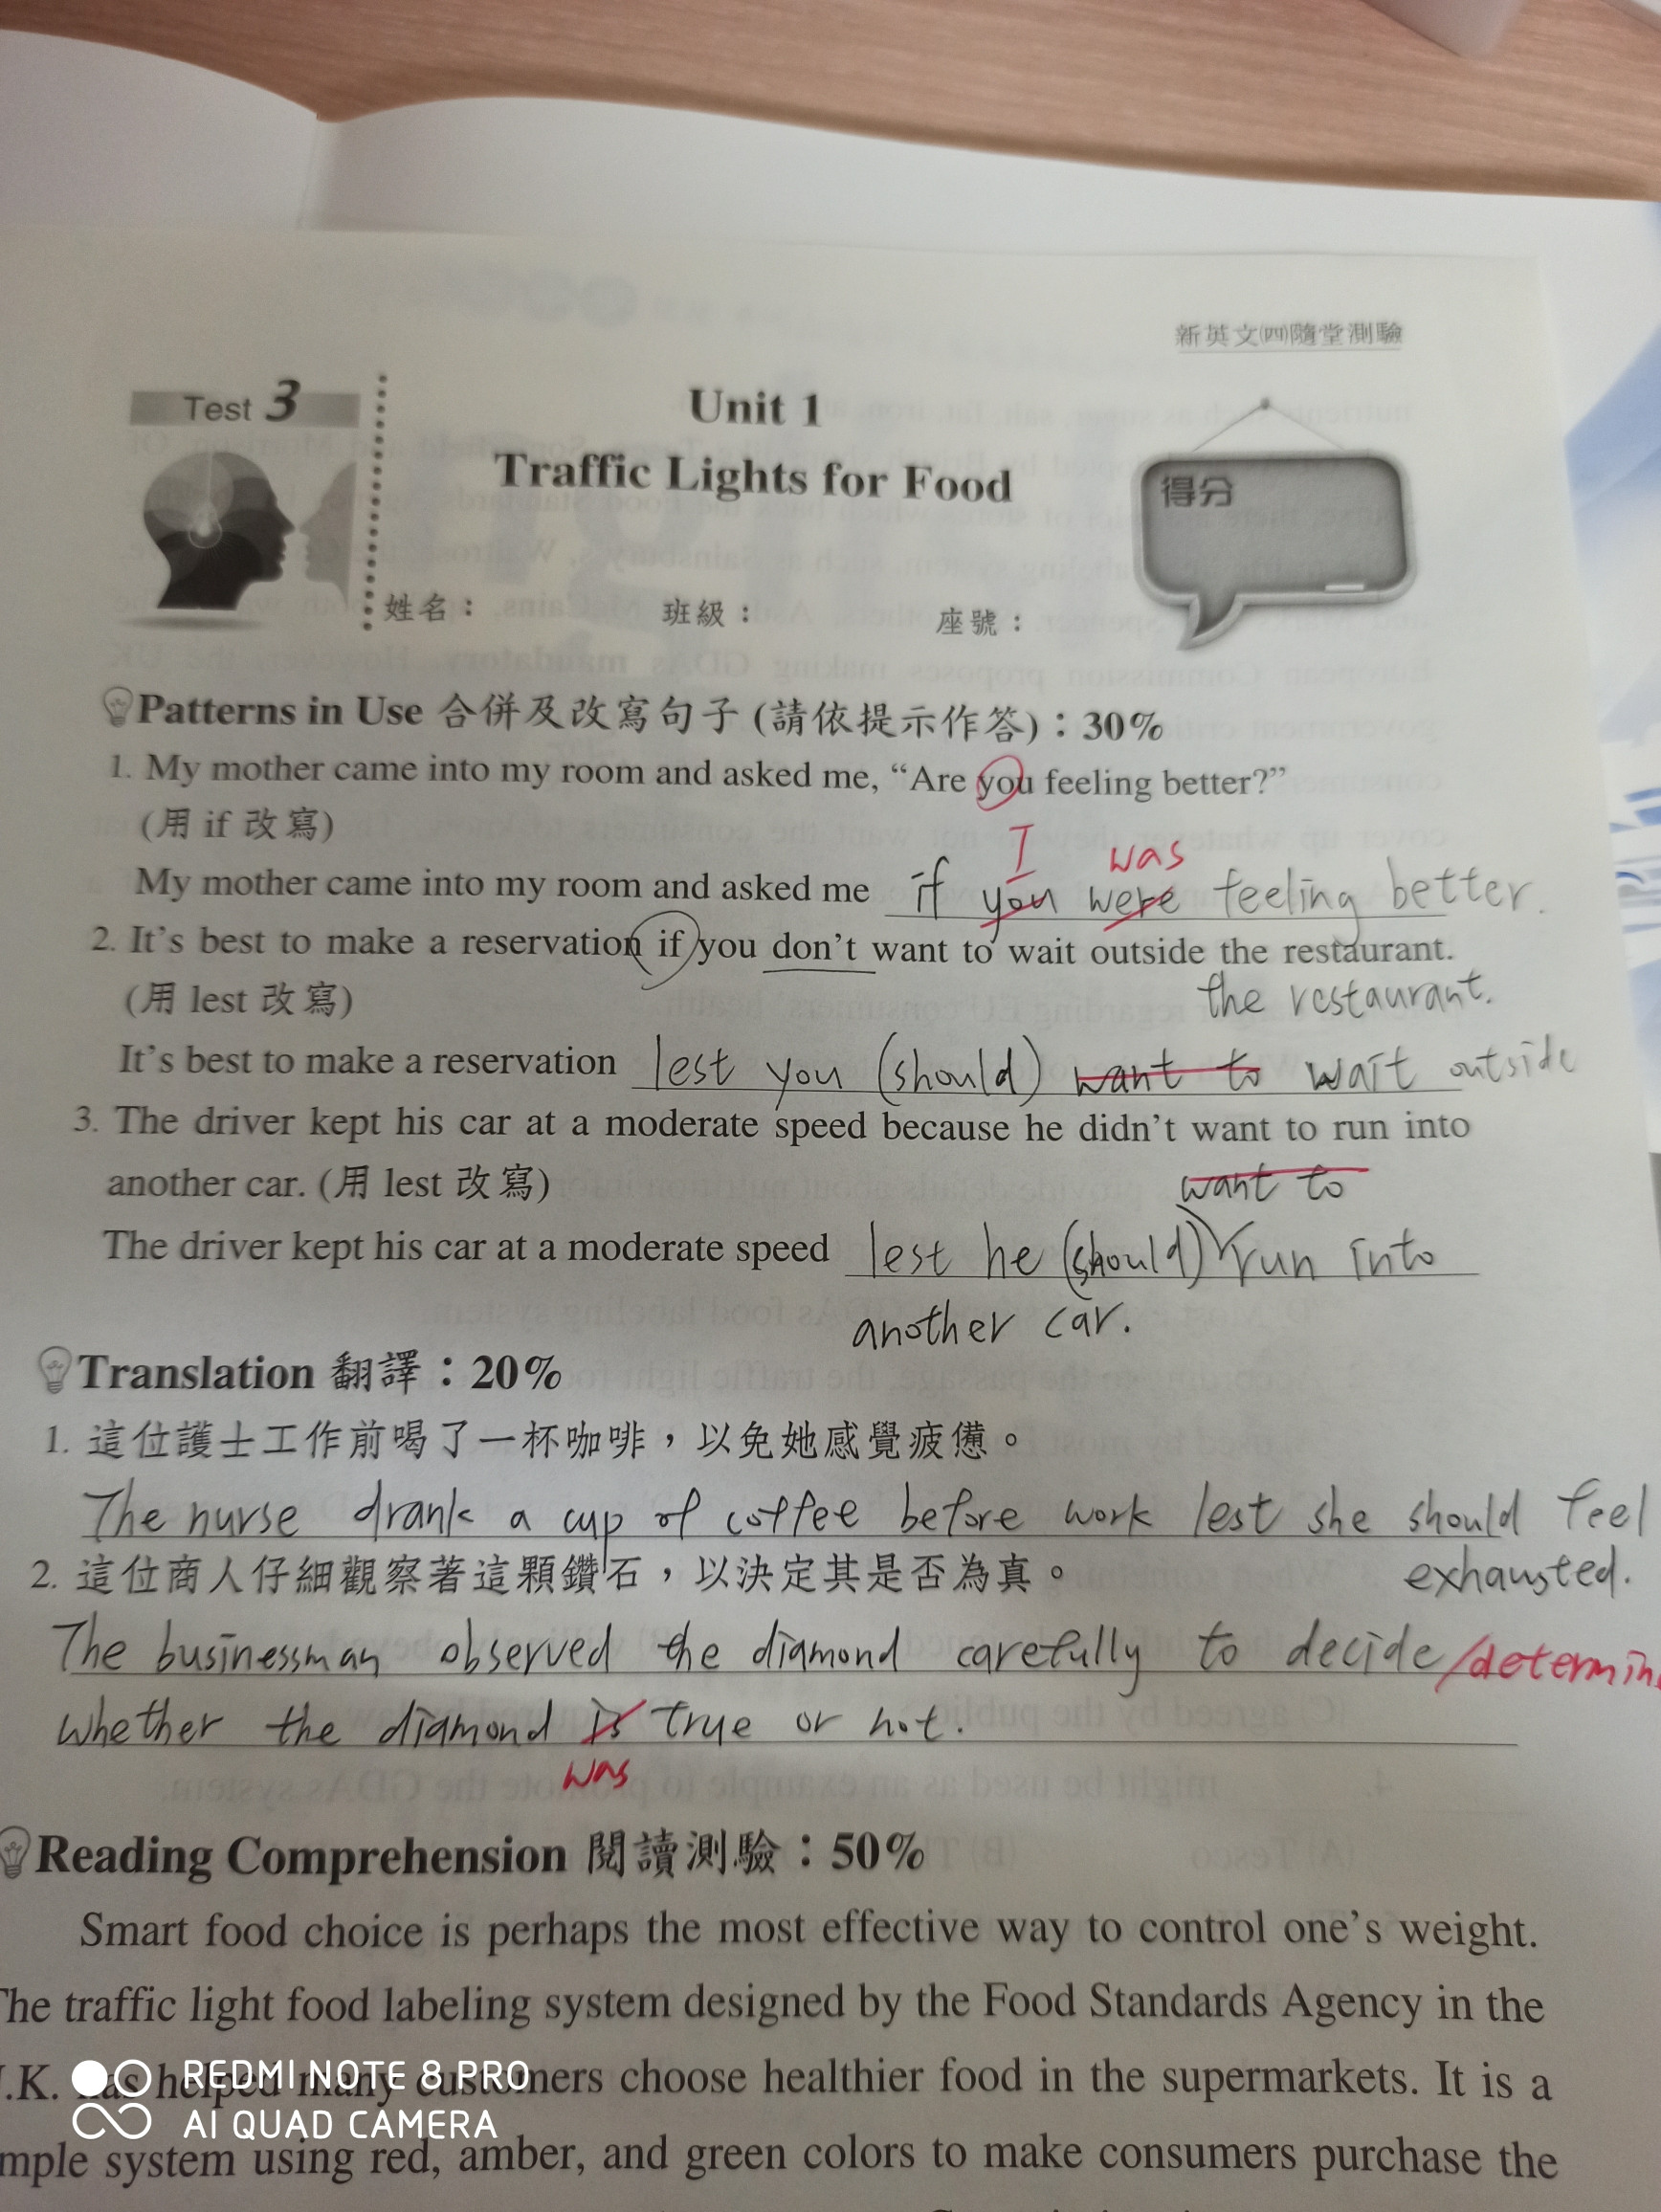 新英文㈣隨堂測驗
Test 3
Unit 1
Traffic Lights for Food
得分
姓名： 班級： 座號：
Patterns in Use 合併及改寫句子 (請依提示作答)：30%
1. My mother came into my room and asked me, “Are you feeling better?”
(用 if 改寫)
I was
My mother came into my room and asked me if you were feeling better.
2. It’s best to make a reservation if you don’t want to wait outside the restaurant.
(用 lest 改寫)
the restaurant.
It’s best to make a reservation lest you (should) want to wait outside
3. The driver kept his car at a moderate speed because he didn’t want to run into
another car. (用 lest 改寫)
want to
The driver kept his car at a moderate speed lest he (should) run into
another car.
Translation 翻譯：20%
1. 這位護士工作前喝了一杯咖啡，以免她感覺疲憊。
The nurse drank a cup of coffee before work lest she should feel
exhausted.
2. 這位商人仔細觀察著這顆鑽石，以決定其是否為真。
The businessman observed the diamond carefully to decide/determin
whether the diamond is true or not.
was
Reading Comprehension 閱讀測驗：50%
Smart food choice is perhaps the most effective way to control one’s weight.
The traffic light food labeling system designed by the Food Standards Agency in the
.K. has helped many customers choose healthier food in the supermarkets. It is a
mple system using red, amber, and green colors to make consumers purchase the
REDMI NOTE 8 PRO
AI QUAD CAMERA